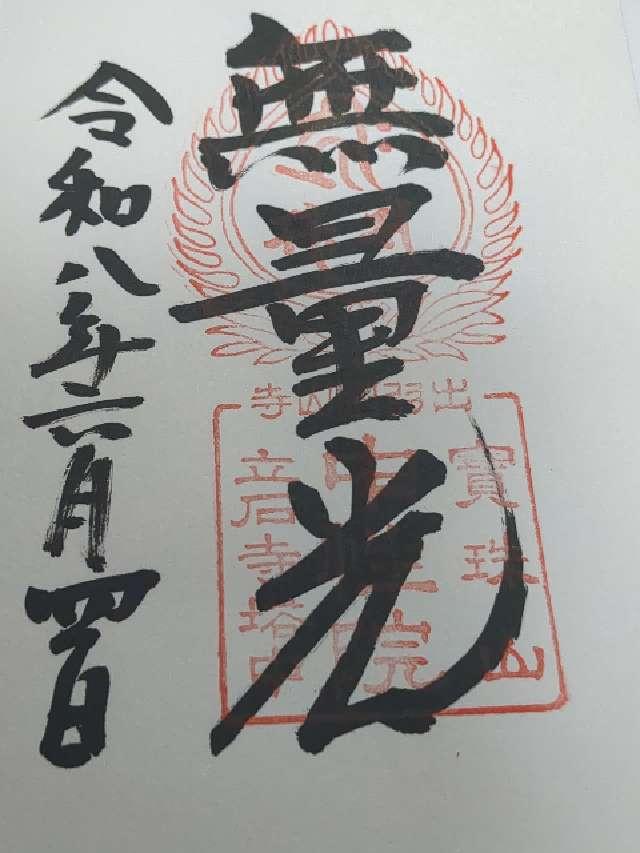 無量光
令和八年六月四日
出羽国山寺
寳珠山
中性院
立石寺塔中